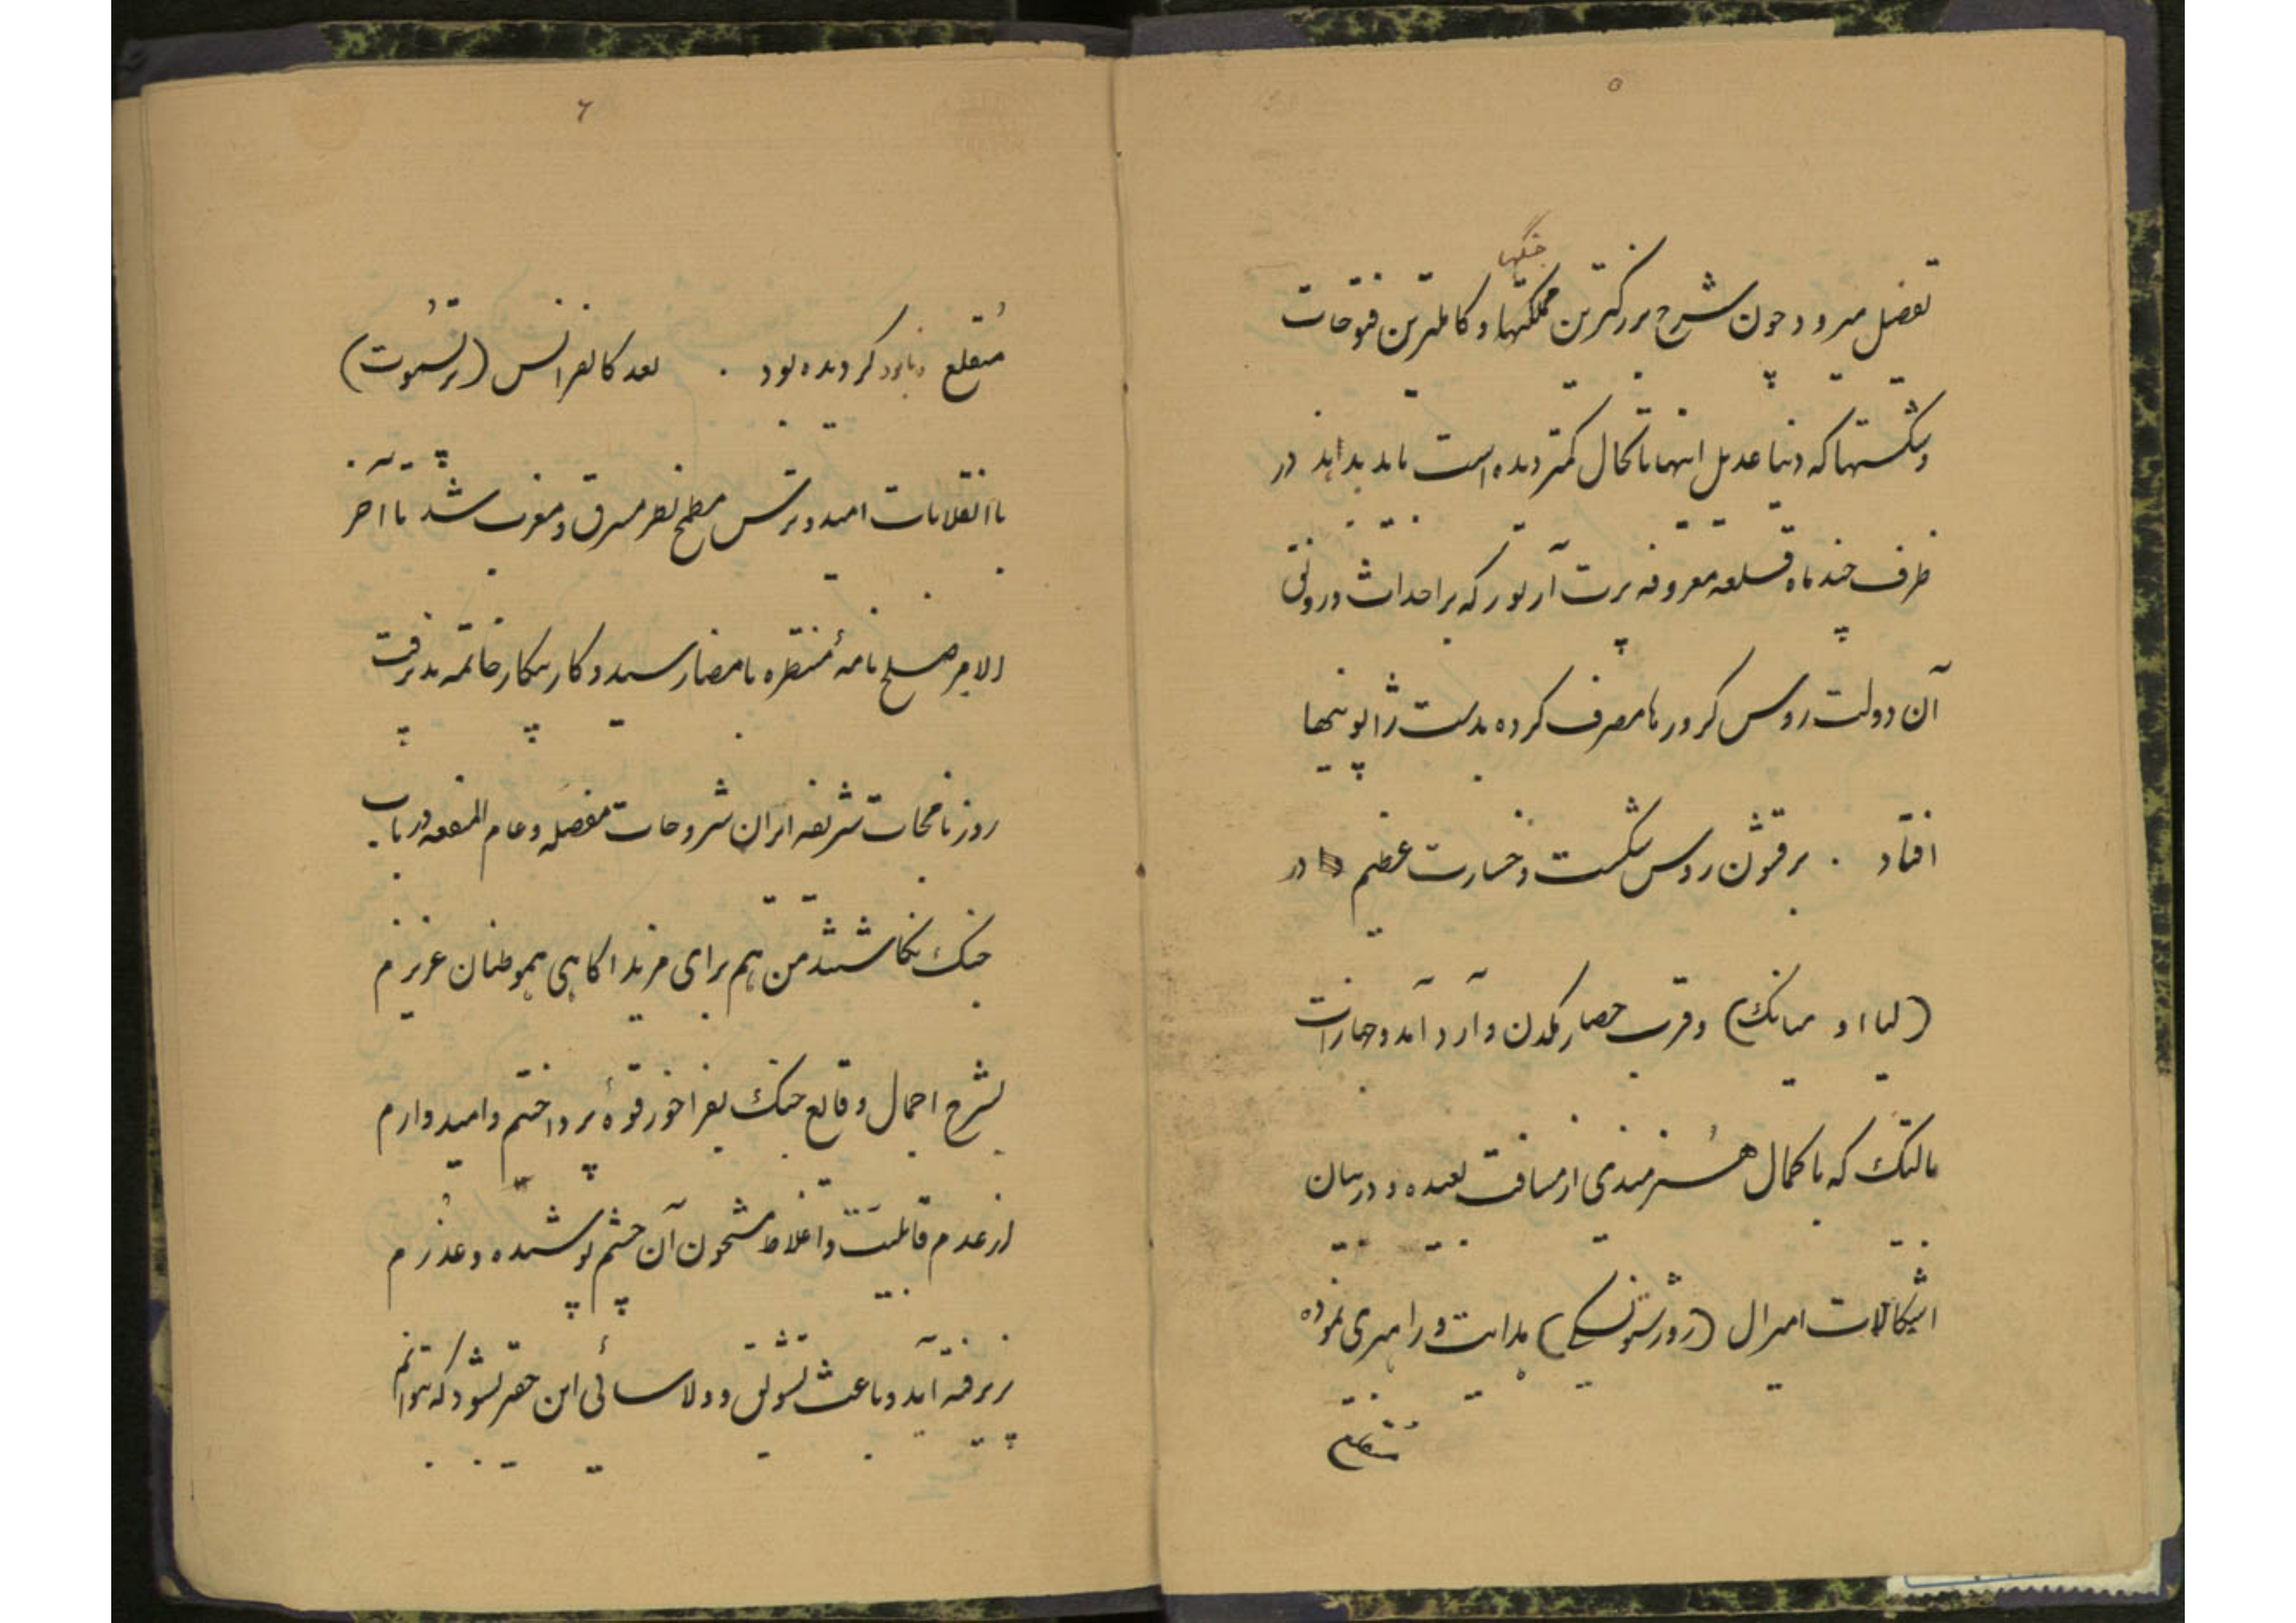 ۵
جنگها
تفصیل میرود چون شرح بزرگترین مملکتها و کاملترین فتوحات
و شکستها که دنیا عدیل اینها تا بحال کمتر دیده است باید بداند در
ظرف چند ماه قلعه معروفه پرت آرتور که بر احداث و رونقی
آن دولت روس کرورها مصرف کرده بدست ژاپونیها
افتاد . بر قشون روس شکست و خسارت عظیم در
(لیااو یانک) و قرب حصار مکدن وارد آمد و جهازات
بالتیک که با کمال هنرمندی از مسافت بعیده و در میان
اشکالات امیرال (روژستونسکی) هدایت و راهبری نموده
منقلع
۶
منقلع و نابود کردیده بود . بعد کانفرانس (پرتسموت)
با انقلابات امید و ترس مطمح نظر مشرق و مغرب شد تا آخر
الامر صلح نامهٔ منتظره بامضا رسید و کار پیکار خاتمه پذیرفت
روزنامجات شریفه ایران شروحات مفصله و عام المنفعه در باب
جنک نکاشتند من هم برای مزید اکاهی هموطنان عزیزم
بشرح اجمال وقایع جنک بفراخور قوهٔ پرداختم و امیدوارم
از عدم قابلیت و اغلاط مشحون آن چشم پوشیده و عذرم
پزیرفته آید و باعث تشویق و دلاسائی این حقیر بشود که بتوانم